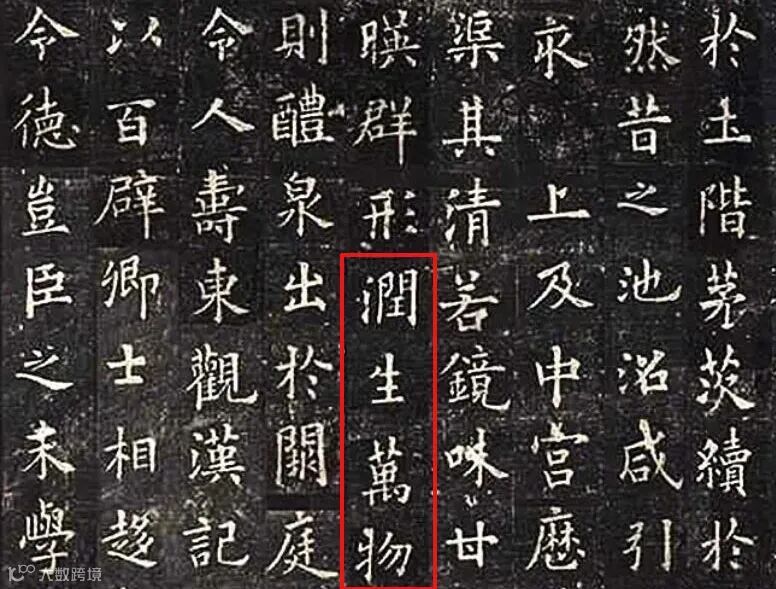 於土階茅茨續於
然昔之池沼咸引
求 上及中宮歷
渠其清若鏡味甘
暎群形潤生萬物
則醴泉出於闕庭
令人壽東觀漢記
以百辟卿士相趍
令德豈臣之末學
大数跨境